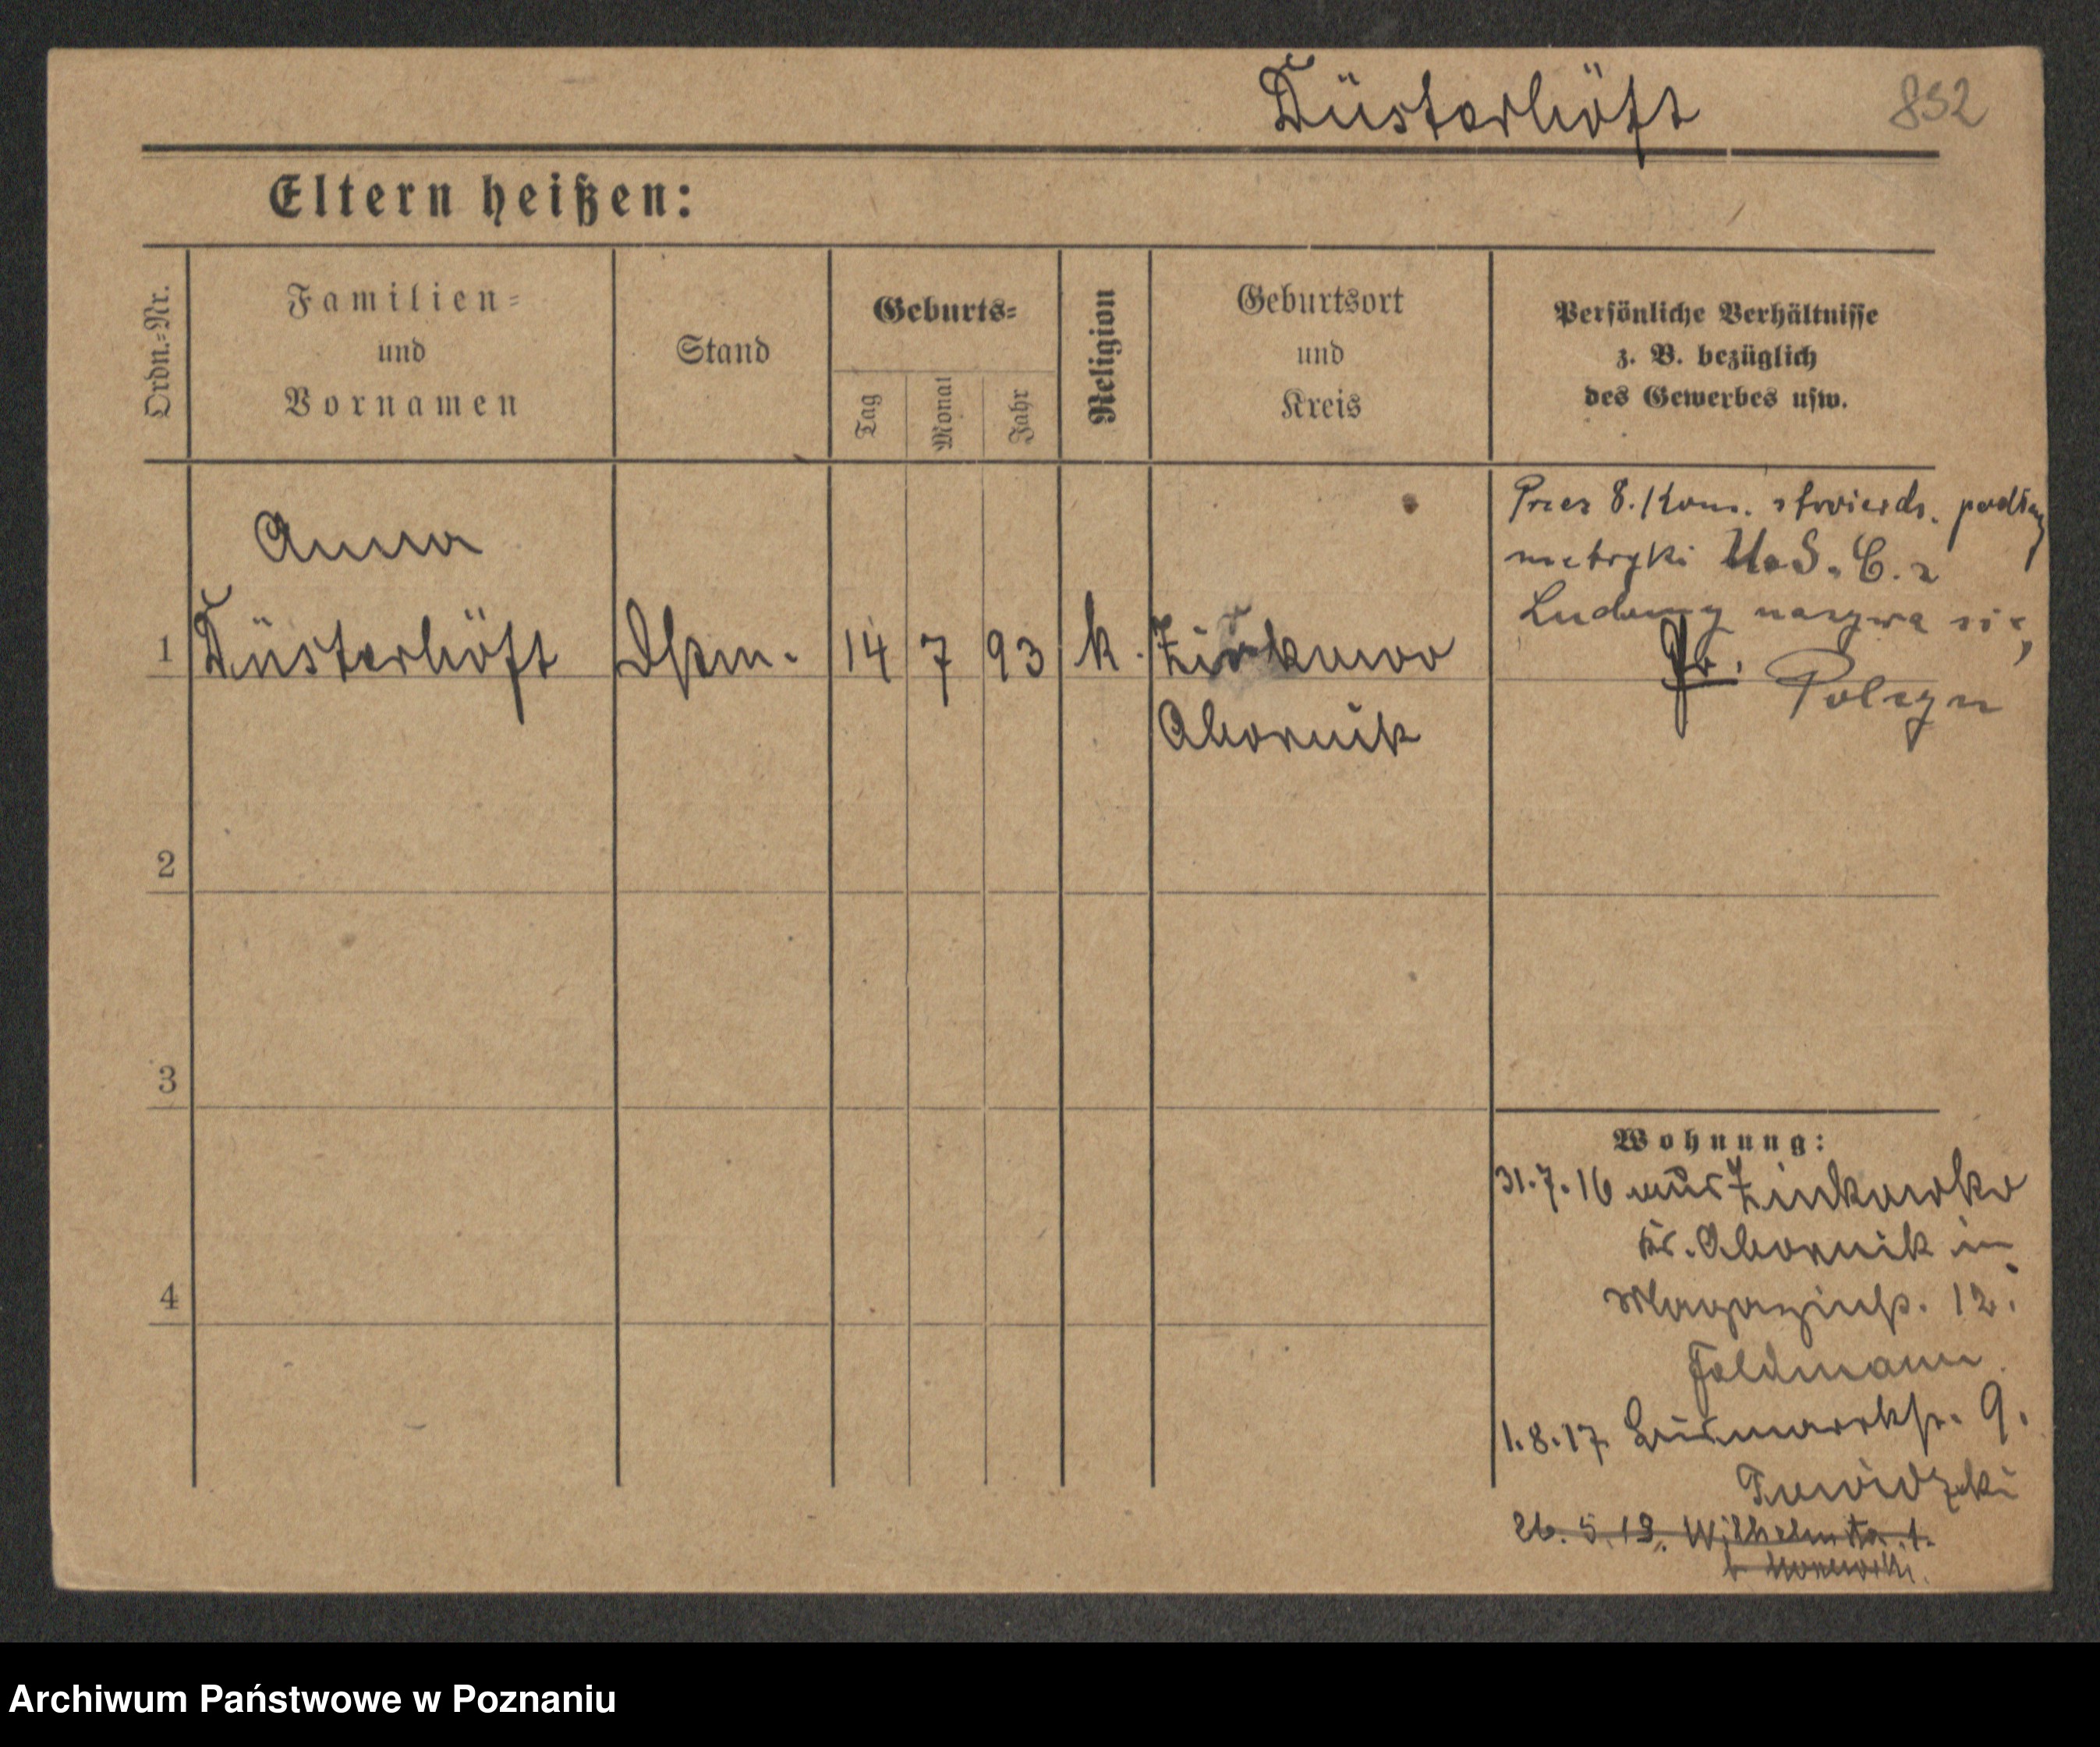 Düsterhöft 852
Eltern heißen:
Ordn.-Nr.
Familien-
und
Vornamen
Stand
Geburts-
Tag
Monat
Jahr
Religion
Geburtsort
und
Kreis
Persönliche Verhältnisse
z. B. bezüglich
des Gewerbes usw.
Anna
1 Düsterhöft Dstm. 14 7 93 k.
Obornik
Przez 8. Kom. stwierdz. podług
metryki U.S.C. z
Ludomy nazywa się
Polzyn
2
3
4
Wohnung:
31.7.16 aus Zinkowko
Kr. Obornik in
Magazinstr. 12.
Feldmann.
1.8.17 Bismarckstr. 9.
26. 5. 19. Wilhelmstr. 1.
b